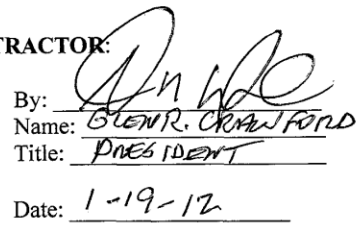 TRACTOR:
By:
Name: GLEN R. CRAWFORD
Title: PRESIDENT
Date: 1-19-12